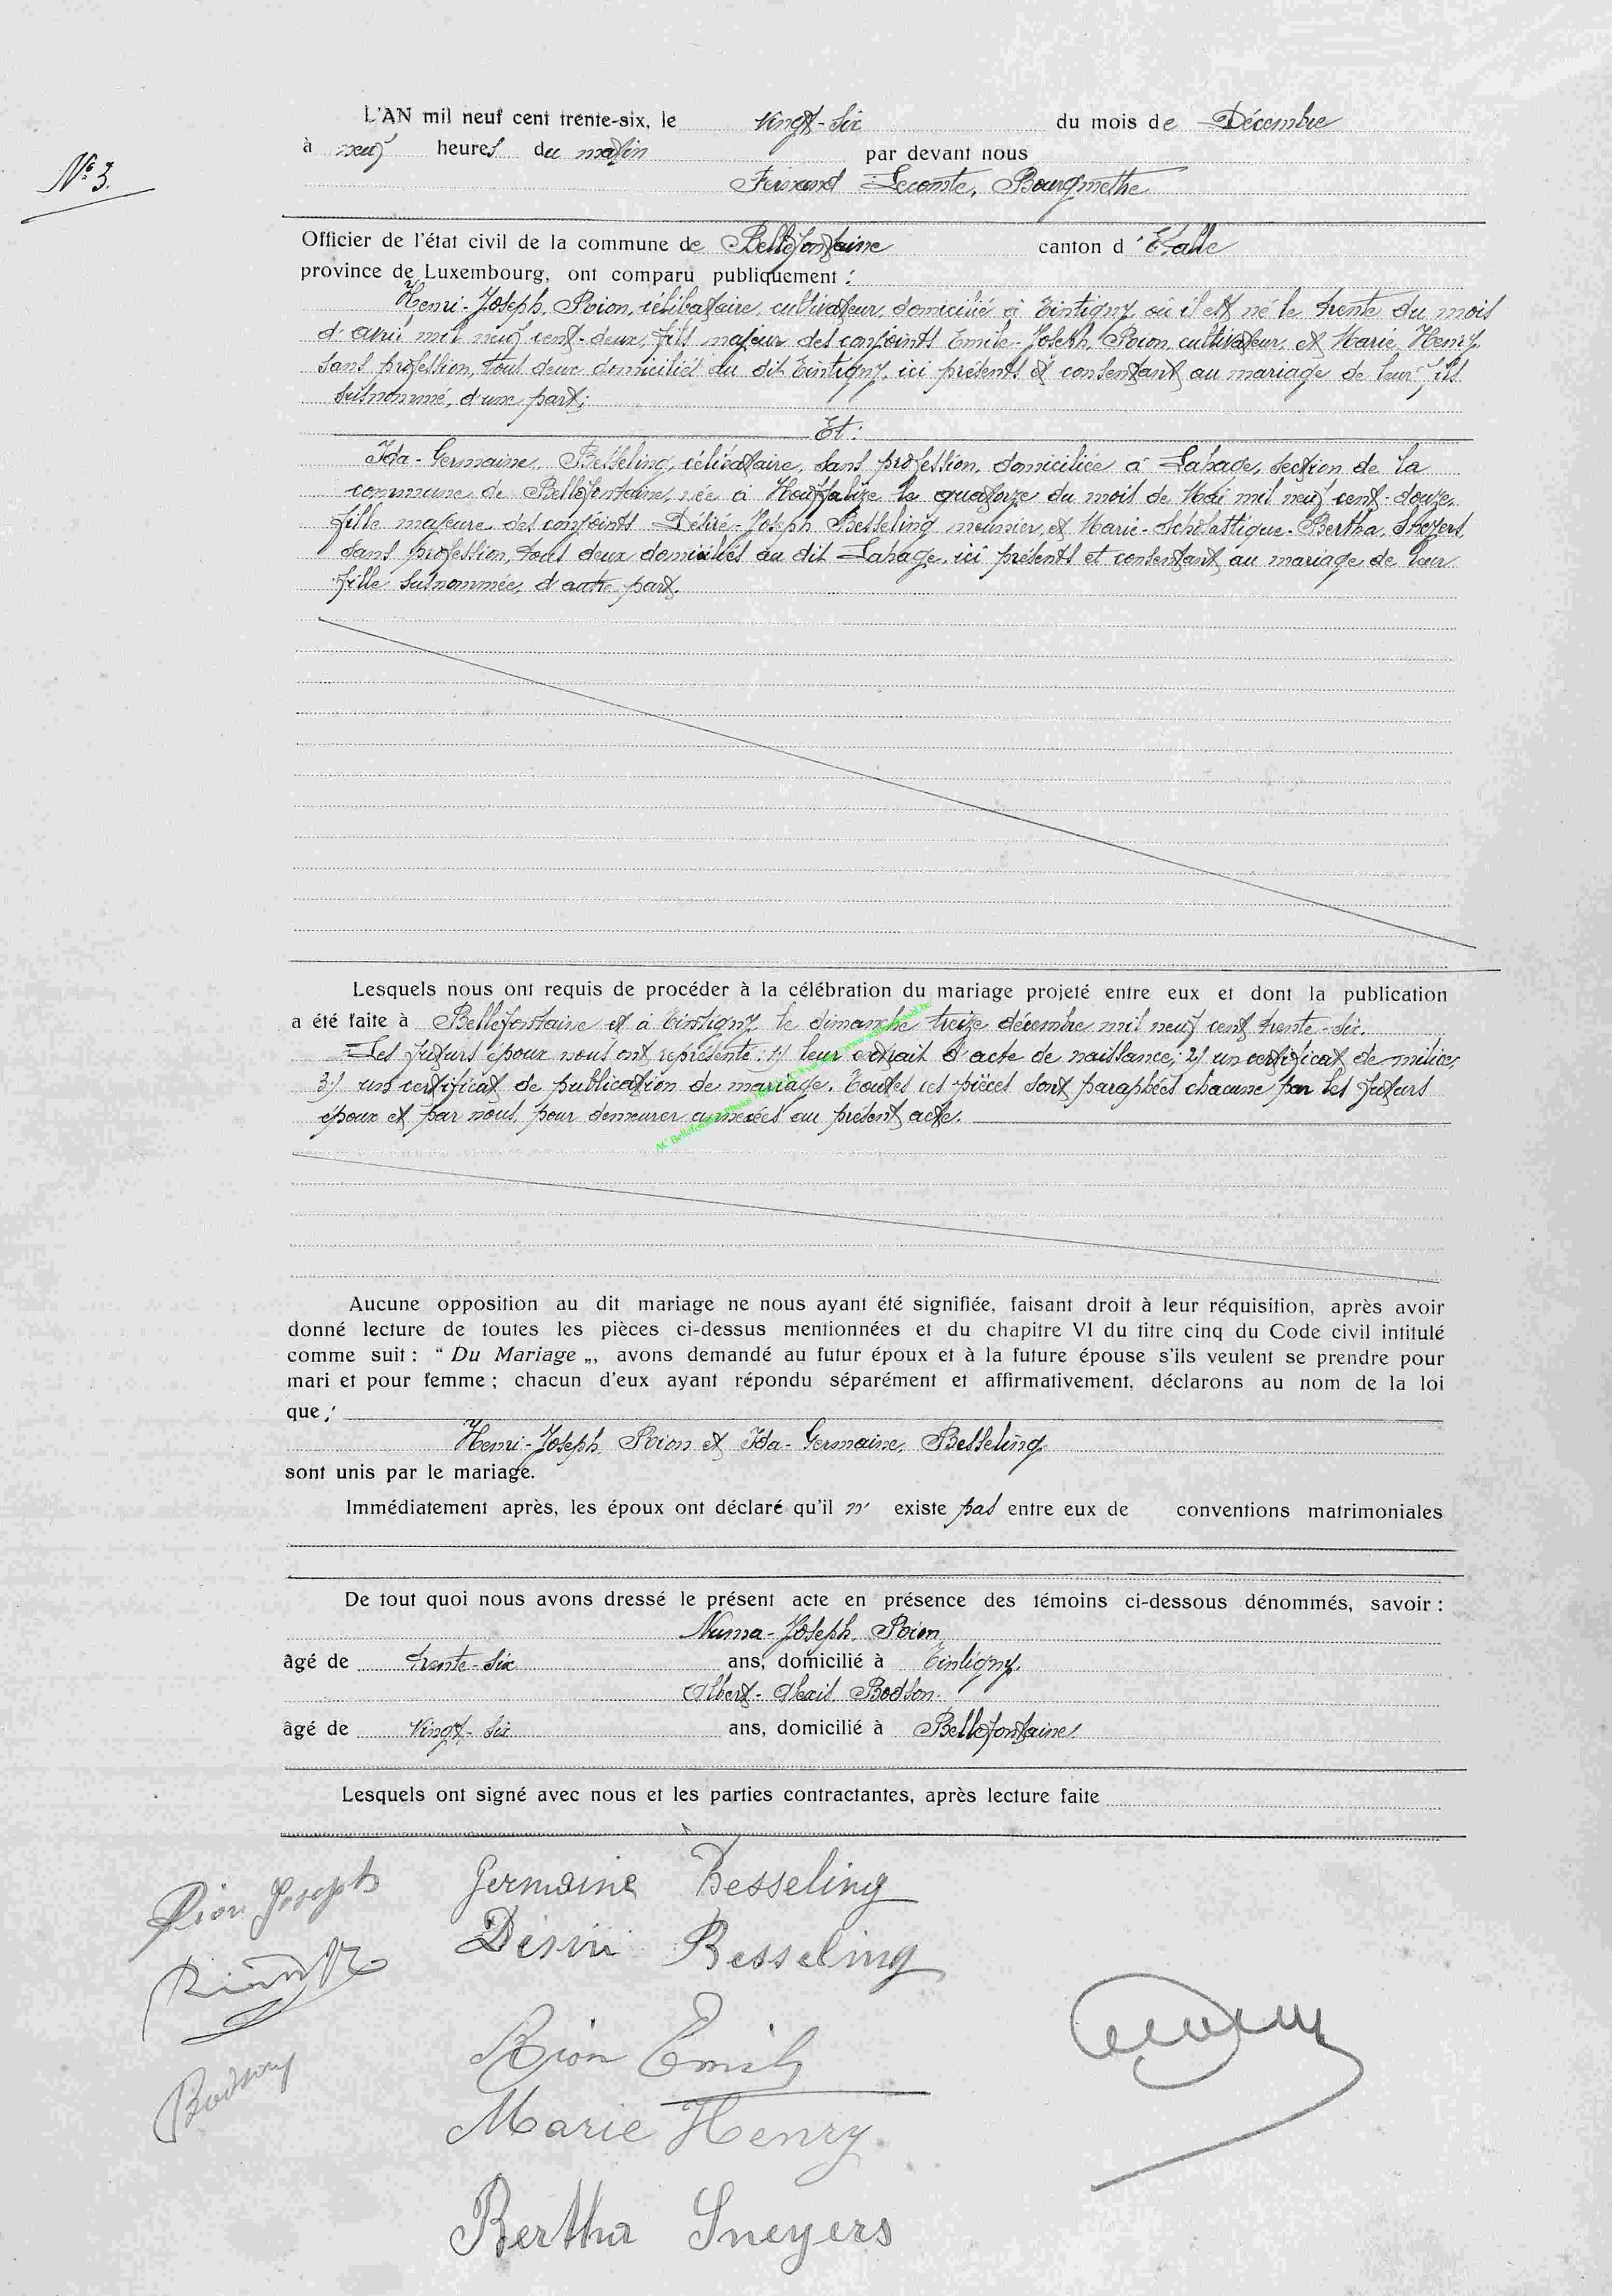 L'AN mil neuf cent trente-six, le vingt-six du mois de Décembre
à neuf heures du matin par devant nous
N° 3.
Fernand Lecomte, Bourgmestre
Officier de l'état civil de la commune de Bellefontaine canton d'Etalle
province de Luxembourg, ont comparu publiquement :
Henri-Joseph, Rion, célibataire, cultivateur, domicilié à Tintigny où il est né le trente du mois
d'avril mil neuf cent-deux, fils majeur des conjoints Emile-Joseph, Rion, cultivateur, et Marie, Henry,
sans profession, tous deux domiciliés au dit Tintigny, ici présents et consentant au mariage de leur fils
susnommé, d'une part;
Et:
Ida-Germaine, Besseling, célibataire, sans profession, domiciliée à Lahage, section de la
commune de Bellefontaine, née à Houffalize le quatorze du mois de Mai mil neuf cent-douze,
fille majeure des conjoints Désiré-Joseph Besseling, meunier, et Marie-Scholastique-Bertha, Sneyers,
sans profession, tous deux domiciliés au dit Lahage, ici présents et consentant au mariage de leur
fille susnommée, d'autre part.
Lesquels nous ont requis de procéder à la célébration du mariage projeté entre eux et dont la publication
a été faite à Bellefontaine et à Tintigny le dimanche treize décembre mil neuf cent trente-six.
Les futurs époux nous ont représenté: 1) leur extrait d'acte de naissance; 2) un certificat de milice;
3) un certificat de publication de mariage. Toutes ces pièces sont paraphées chacune par les futurs
époux et par nous, pour demeurer annexées au présent acte.
AC Bellefontaine Photos
Aucune opposition au dit mariage ne nous ayant été signifiée, faisant droit à leur réquisition, après avoir
donné lecture de toutes les pièces ci-dessus mentionnées et du chapitre VI du titre cinq du Code civil intitulé
comme suit : “ Du Mariage „, avons demandé au futur époux et à la future épouse s'ils veulent se prendre pour
mari et pour femme ; chacun d'eux ayant répondu séparément et affirmativement, déclarons au nom de la loi
que :
Henri-Joseph, Rion et Ida-Germaine, Besseling
sont unis par le mariage.
Immédiatement après, les époux ont déclaré qu'il n' existe pas entre eux de conventions matrimoniales
De tout quoi nous avons dressé le présent acte en présence des témoins ci-dessous dénommés, savoir :
Numa-Joseph, Rion
âgé de trente-six ans, domicilié à Tintigny.
Albert-Alexis Bodson.
âgé de vingt-six ans, domicilié à Bellefontaine.
Lesquels ont signé avec nous et les parties contractantes, après lecture faite
Rion Joseph
Germaine Besseling
Désiré Besseling
Rion Emile
Bodson
Marie Henry
Bertha Sneyers